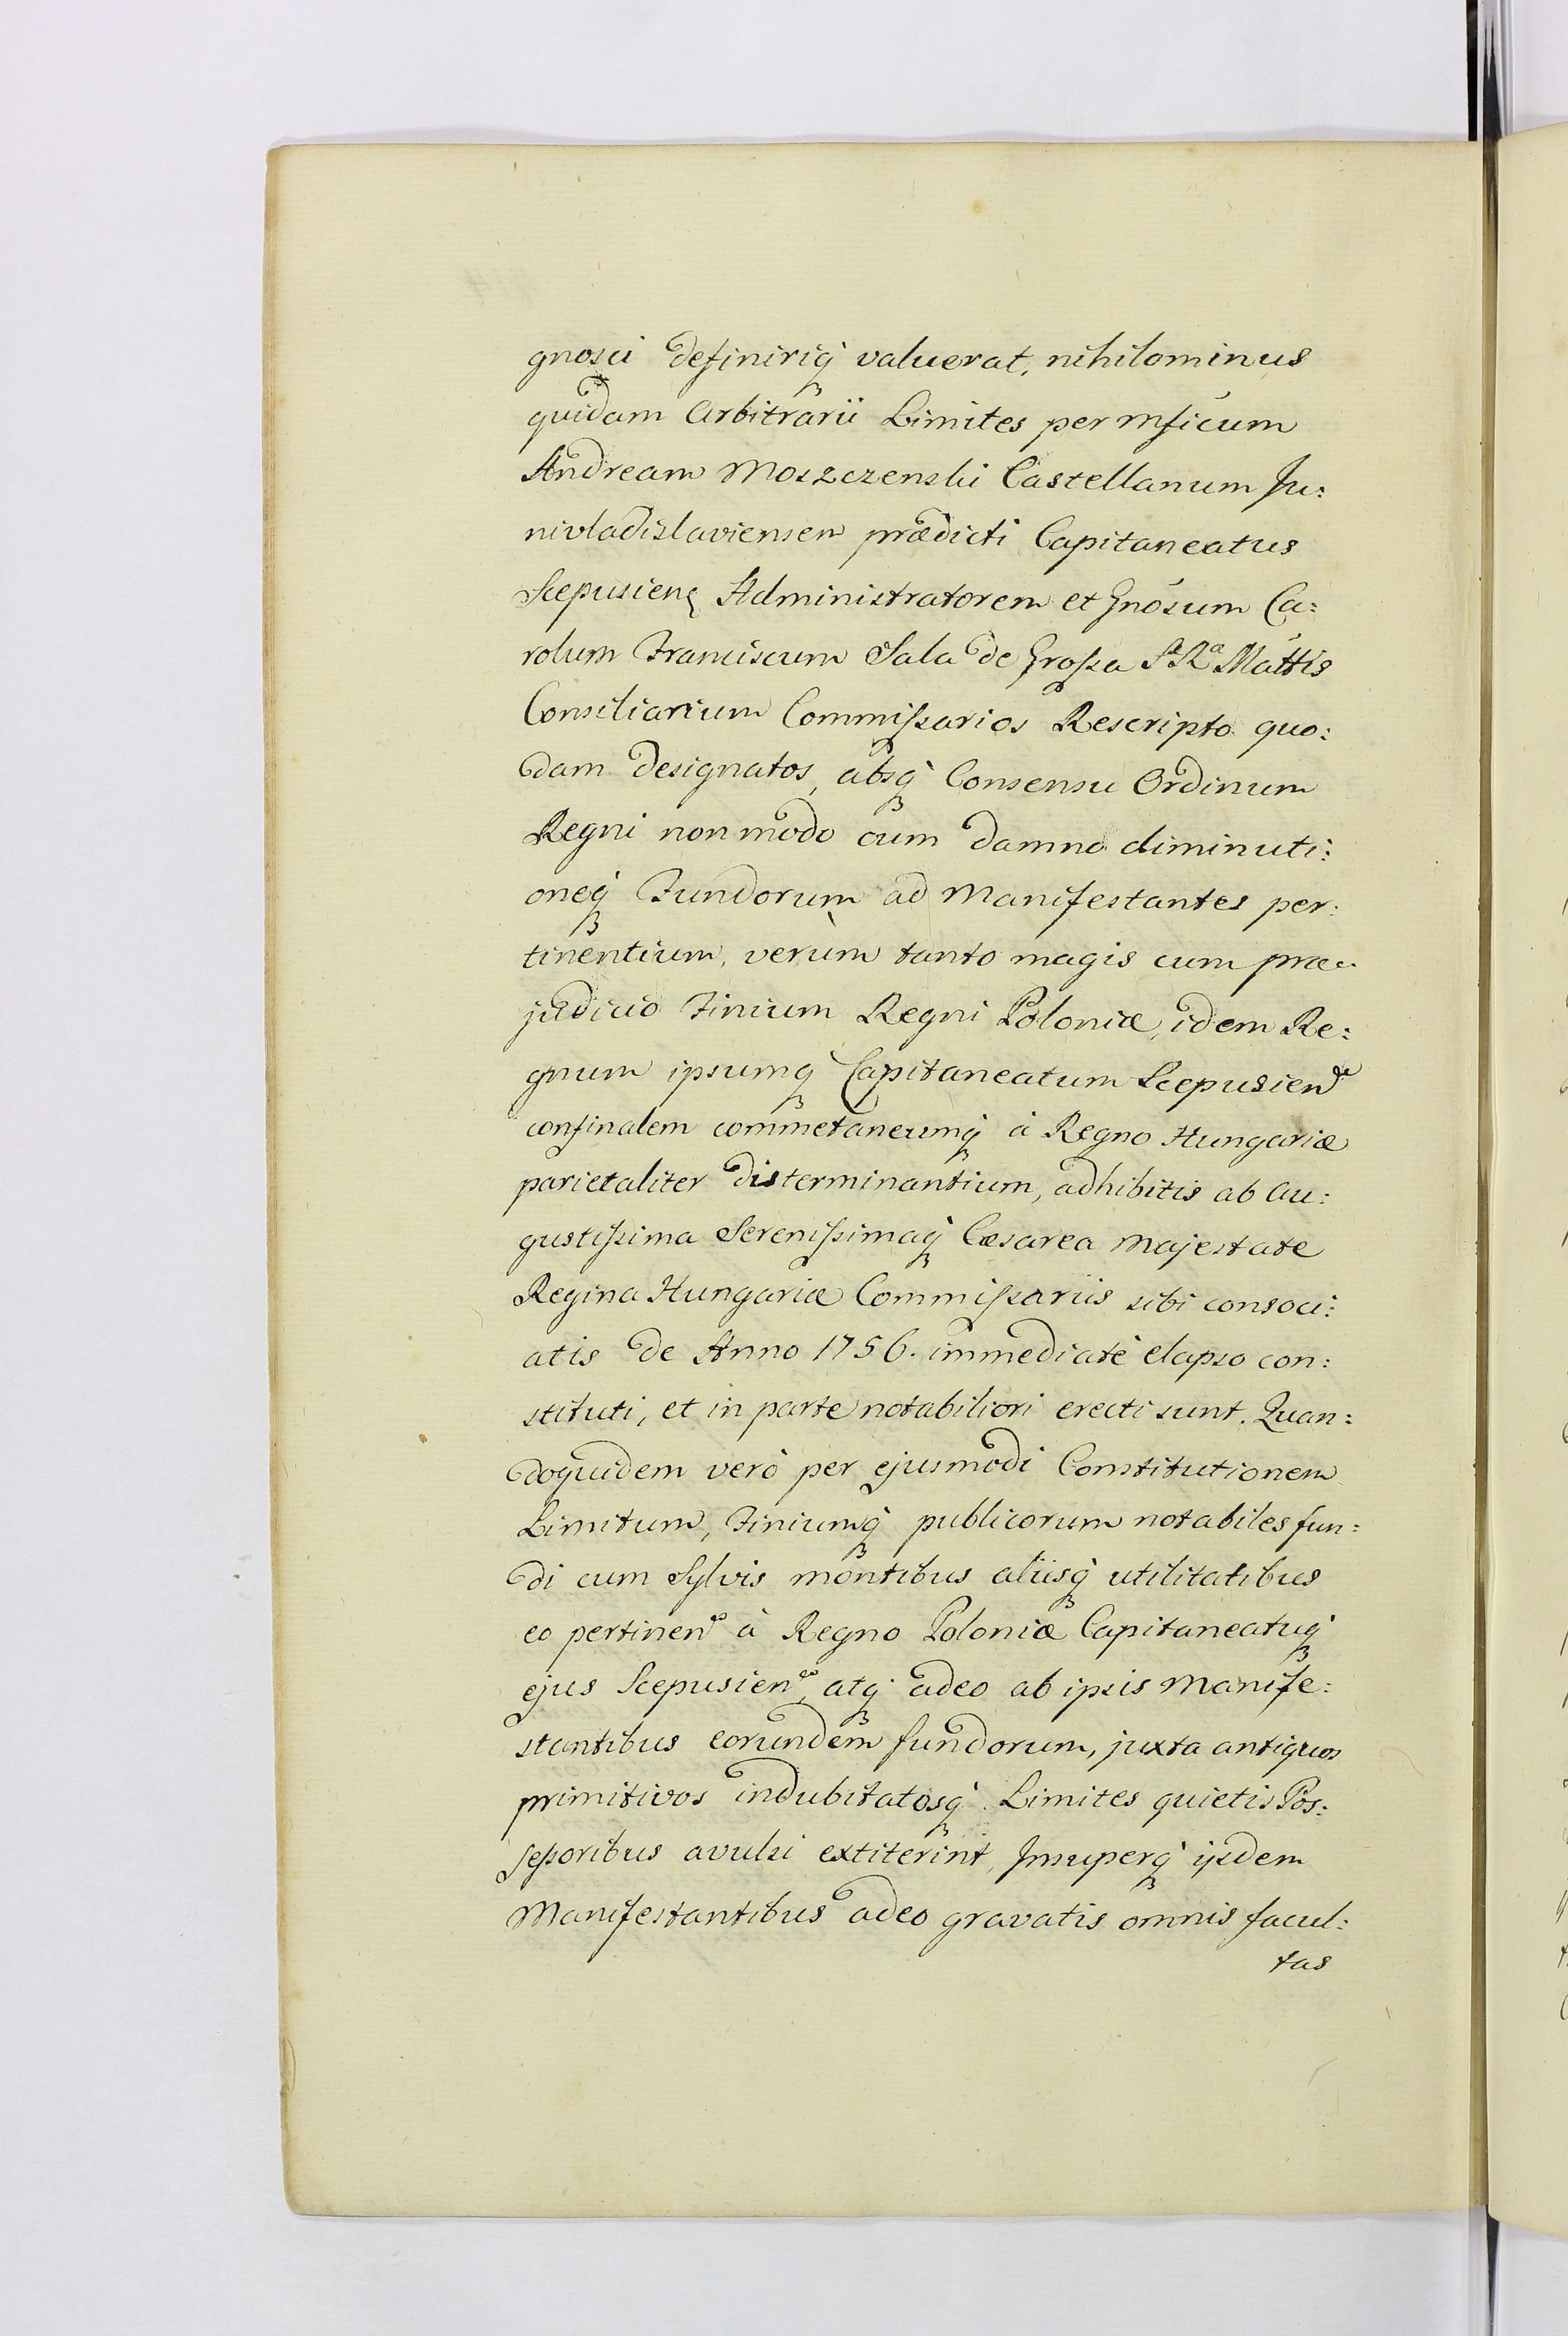 gnosci definirique valuerat, nihilominus
quidam Arbitrarii Limites per Mficum
Andream Moszczenski Castellanum Ju:
nivladislaviensem prædicti Capitaneatus
Scepusien: Administratorem et Gnosum Ca:
rolum Franciscum Sala de Grossa Sæ Ræ Mattis
Consiliarium Commissarios Rescripto quo:
dam designatos, absq; Consensu Ordinum
Regni non modo cum damno diminuti:
oneq; Fundorum ad Manifestantes per:
tinentium, verùm tanto magis cum præ:
judicio Finium Regni Poloniæ, idem Re:
gnum ipsumq; Capitaneatum Scepusien:
confinalem commetaneumq; à Regno Hungariæ
parietaliter disterminantium, adhibitis ab Au:
gustissima Serenissimaq; Cæsarea Majestate
Regina Hungariæ Commissariis sibi consoci:
atis de Anno 1756. immediatè elapso con:
stituti, et in parte notabiliori erecti sunt. Quan:
doquidem verò per ejusmodi Constitutionem
Limitum, Finiumq; publicorum notabiles fun:
di cum Sylvis montibus aliisq; utilitatibus
eo pertinen: à Regno Poloniæ Capitaneatuq;
ejus Scepusien:, atq; adeo ab ipsis Manife:
stantibus eorundem fundorum, juxta antiquos
primitivos indubitatosq; Limites quietis Pos:
sessoribus avulsi extiterint, Insuperq; ijsdem
Manifestantibus adeo gravatis omnis facul:
tas